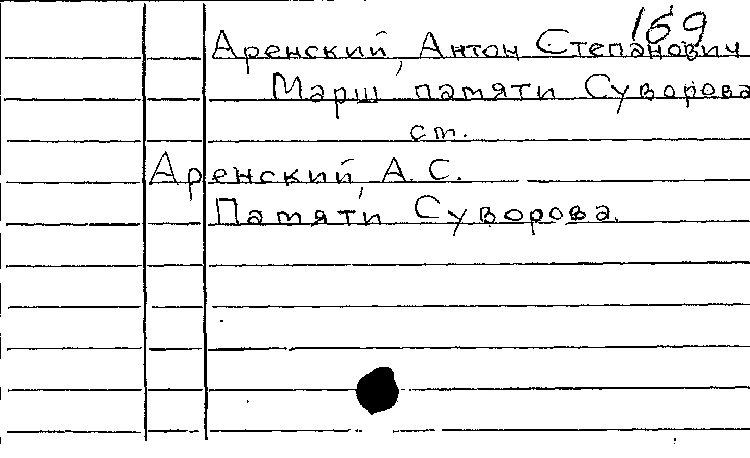 169
Аренский, Антон Степанович
Марш памяти Суворова
ст.
Аренский, А. С.
Памяти Суворова.